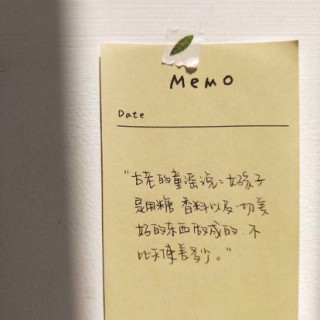 MEMO
Date
“古老的童谣说：好孩子
是用糖 香料以及一切美
好的东西做成的 不
比天使差多少。”